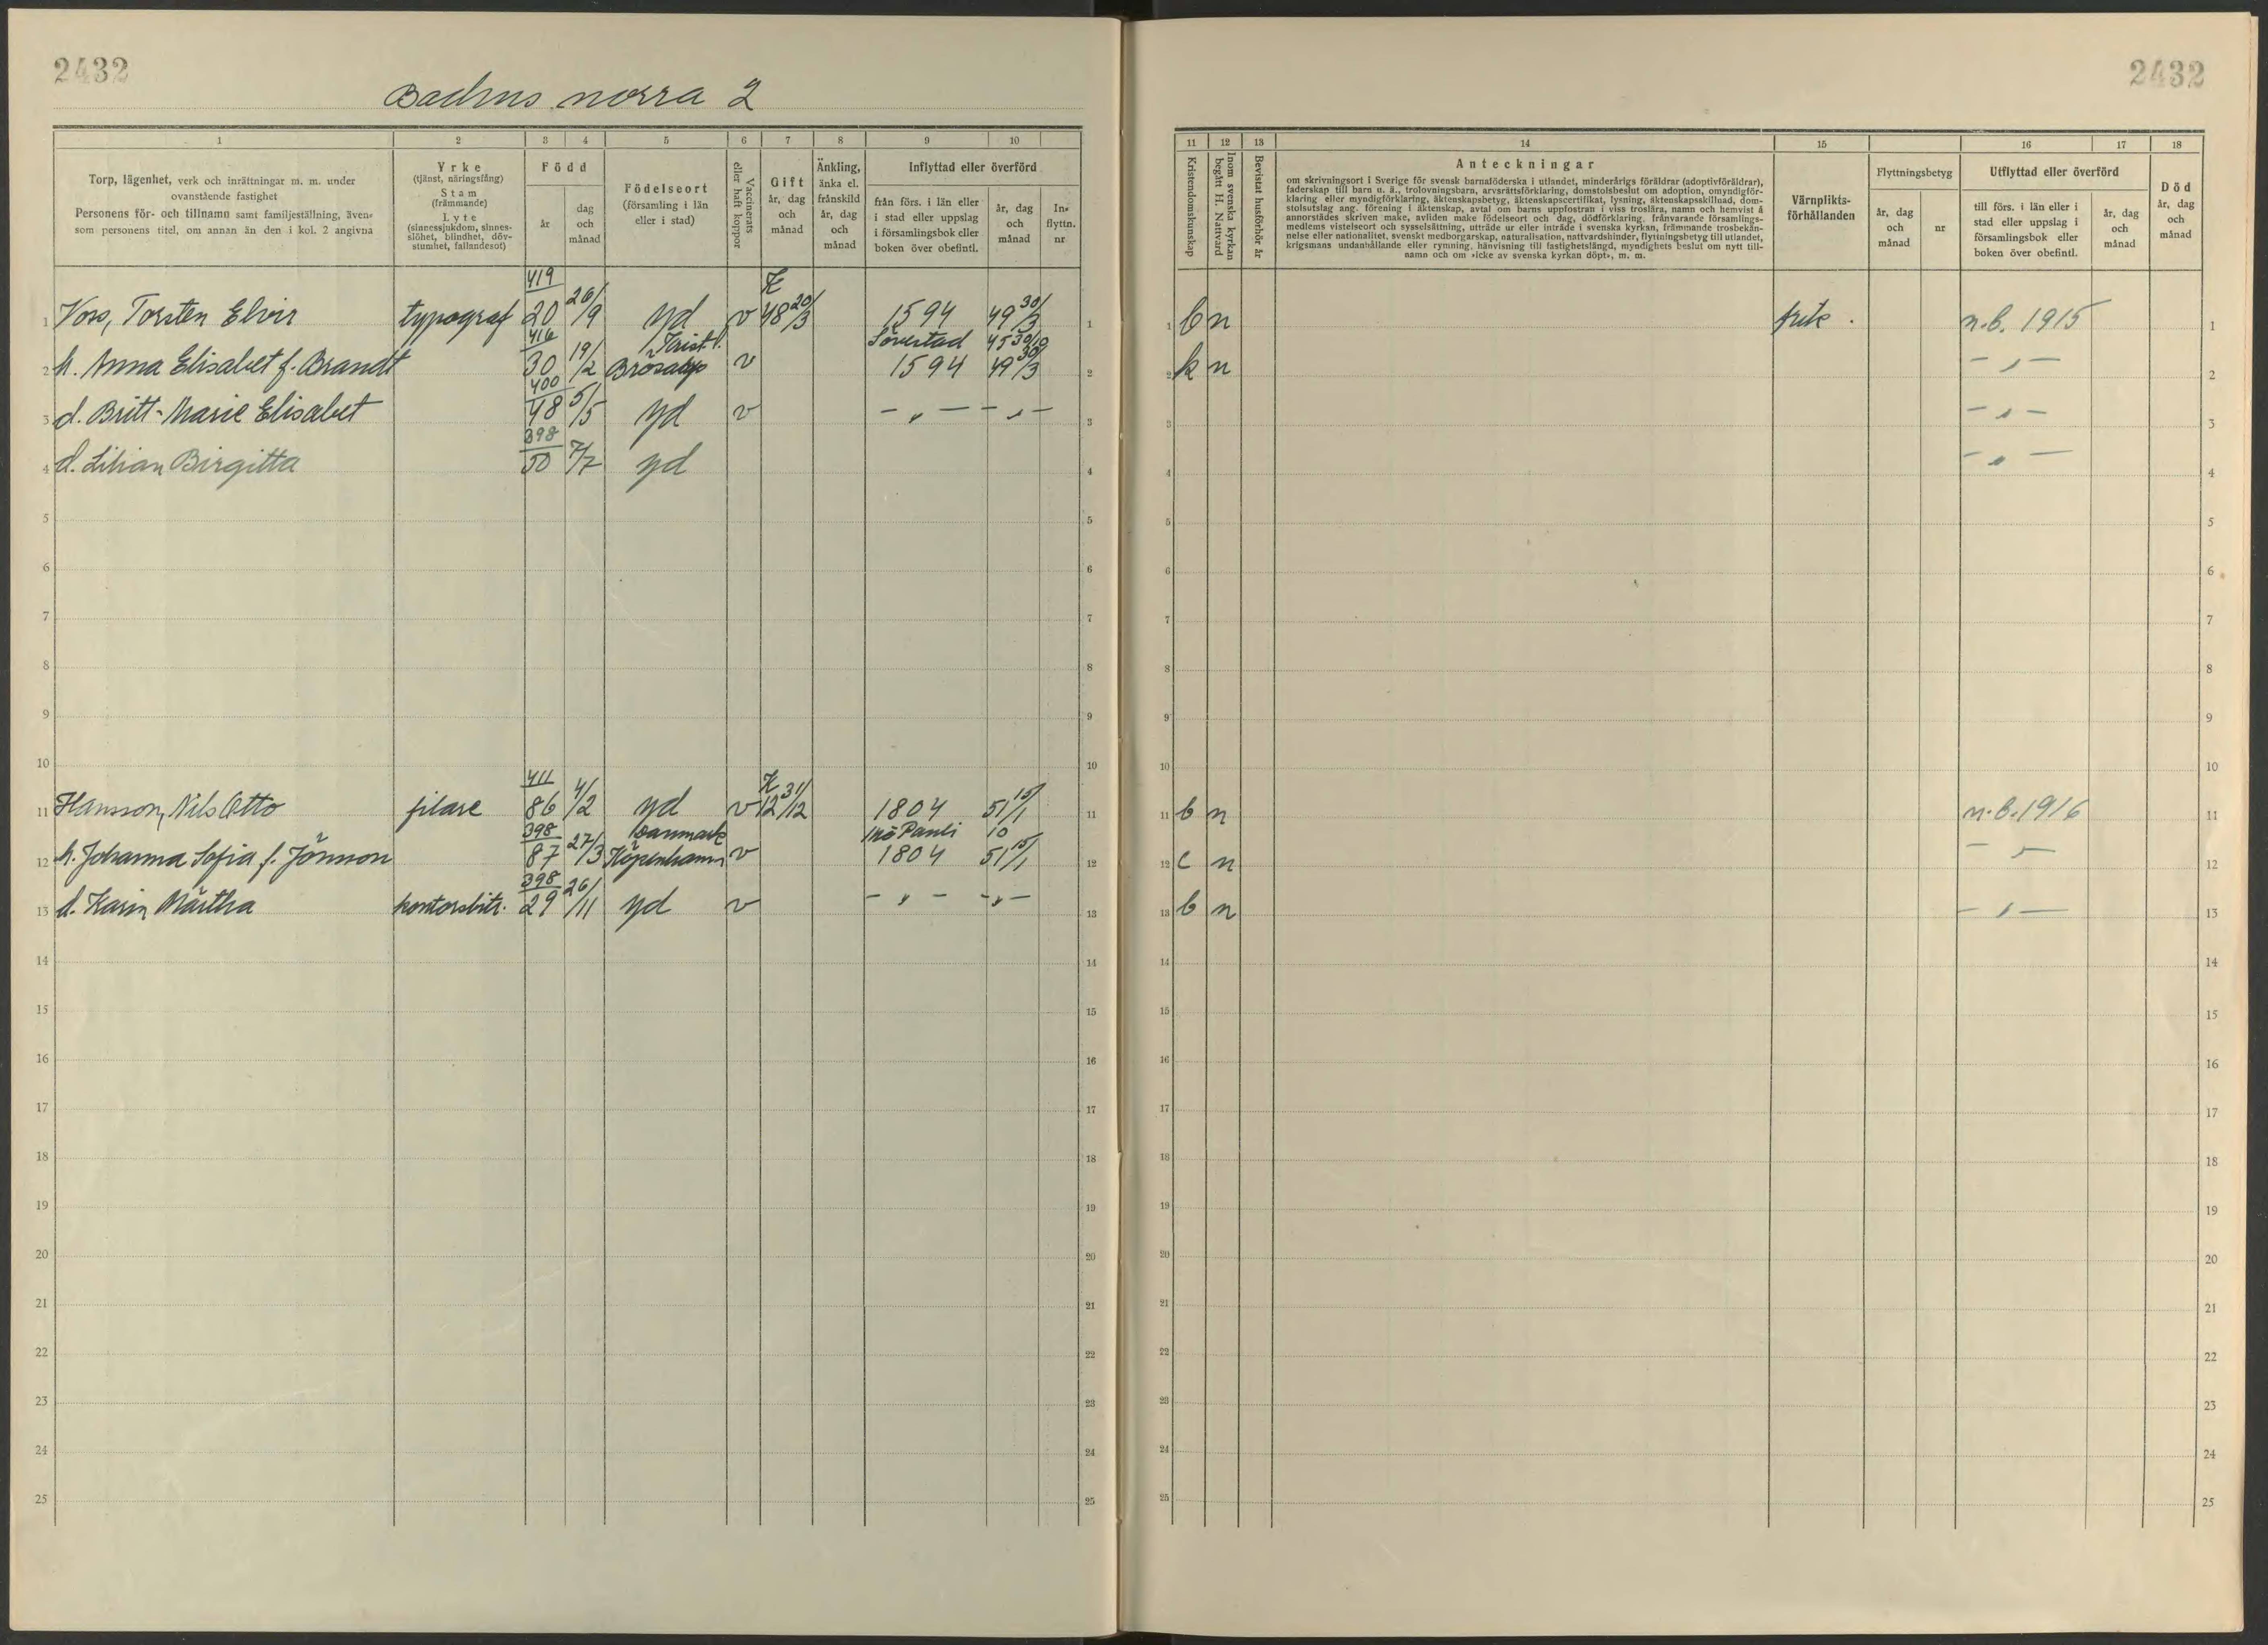 2432
Bachus norra 2
1 2 3 4 5 6 7 8 9 10
Torp, lägenhet, verk och inrättningar m. m. under
ovanstående fastighet
Personens för- och tillnamn samt familjeställning, även-
som personens titel, om annan än den i kol. 2 angivna
Yrke
(tjänst, näringsfång)
Stam
(främmande)
Lyte
(sinnessjukdom, sinnes-
slöhet, blindhet, döv-
stumhet, fallandesot)
Född
år
dag
och
månad
Födelseort
(församling i län
eller i stad)
Vaccinerats
eller haft koppor
Gift
år, dag
och
månad
Änkling,
änka el.
frånskild
år, dag
och
månad
Inflyttad eller överförd
från förs. i län eller
i stad eller uppslag
i församlingsbok eller
boken över obefintl.
år, dag
och
månad
In-
flyttn.
nr
419
1 Voss, Torsten Elvir typograf 20 26/9 Yd v 48 20/3 1594 49 30/3 1
416 Krist.l. Sövestad 45 30/10
2 h. Anna Elisabet f. Brandt 30 19/2 Brösarp v 1594 49 30/3 2
400
3 d. Britt-Marie Elisabet 48 5/5 Yd v – „ – – „ – 3
398
4 d. Lilian Birgitta 50 7/7 Yd 4
5 5
6 6
7 7
8 8
9 9
10 10
411
11 Hansson, Nils Otto filare 86 4/2 Yd v 12 31/12 1804 51 15/1 11
398 Danmark Mö Pauli 10
12 h. Johanna Sofia f. Jönsson 87 27/3 Köpenhamn v 1804 51 15/1 12
398
13 d. Karin Märtha kontorsbitr. 29 26/11 Yd v – „ – – „ – 13
14 14
15 15
16 16
17 17
18 18
19 19
20 20
21 21
22 22
23 23
24 24
25 25
2432
11 12 13 14 15 16 17 18
Kristendomskunskap
Inom svenska kyrkan
begått H. Nattvard
Bevistat husförhör år
Anteckningar
om skrivningsort i Sverige för svensk barnaföderska i utlandet, minderårigs föräldrar (adoptivföräldrar),
faderskap till barn u. ä., trolovningsbarn, arvsrättsförklaring, domstolsbeslut om adoption, omyndigför-
klaring eller myndigförklaring, äktenskapsbetyg, äktenskapscertifikat, lysning, äktenskapsskillnad, dom-
stolsutslag ang. förening i äktenskap, avtal om barns uppfostran i viss troslära, namn och hemvist å
annorstädes skriven make, avliden make födelseort och dag, dödförklaring, frånvarande församlings-
medlems vistelseort och sysselsättning, utträde ur eller inträde i svenska kyrkan, främmande trosbekän-
nelse eller nationalitet, svenskt medborgarskap, naturalisation, nattvardshinder, flyttningsbetyg till utlandet,
krigsmans undanhållande eller rymning, hänvisning till fastighetslängd, myndighets beslut om nytt till-
namn och om »icke av svenska kyrkan döpt», m. m.
Värnplikts-
förhållanden
Flyttningsbetyg
år, dag
och
månad
nr
Utflyttad eller överförd
till förs. i län eller i
stad eller uppslag i
församlingsbok eller
boken över obefintl.
år, dag
och
månad
Död
år, dag
och
månad
1 b n frik. n.b. 1915 1
2 k n – „ – 2
3 – „ – 3
4 – „ – 4
5 5
6 6
7 7
8 8
9 9
10 10
11 b n n.b. 1916 11
12 c n – „ – 12
13 b n – „ – 13
14 14
15 15
16 16
17 17
18 18
19 19
20 20
21 21
22 22
23 23
24 24
25 25